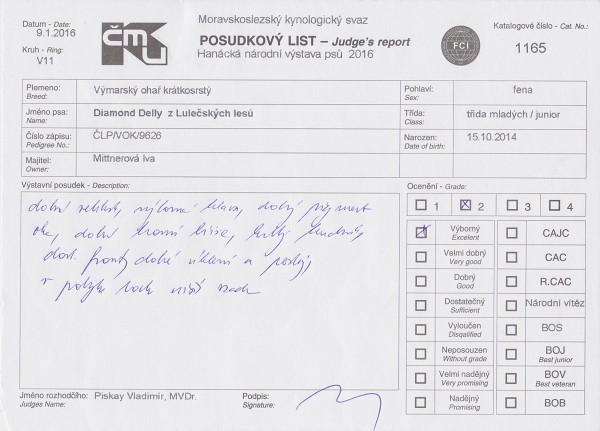 Datum - Date:
9.1.2016
Kruh - Ring:
V11
ČMKU
Moravskoslezský kynologický svaz
POSUDKOVÝ LIST – Judge's report
Hanácká národní výstava psů 2016
FCI
Katalogové číslo - Cat. No.:
1165
Plemeno:
Breed:
Výmarský ohař krátkosrstý
Pohlaví:
Sex:
fena
Jméno psa:
Name:
Diamond Delly z Lulečských lesů
Třída:
Class:
třída mladých / junior
Číslo zápisu:
Pedigree No.:
ČLP/VOK/9626
Narozen:
Date of birth:
15.10.2014
Majitel:
Owner:
Mittnerová Iva
Výstavní posudek - Description:
dobrá velikost, výborná hlava, dobrý
oka, dobrá horní linie, krátký
dost. fronty dobré úhlení a postoj,
v pohybu
Ocenění - Grade:
1 2 3 4
Výborný
Excelent
CAJC
Velmi dobrý
Very good
CAC
Dobrý
Good
R.CAC
Dostatečný
Sufficient
Národní vítěz
Vyloučen
Disqalified
BOS
Neposouzen
Without grade
BOJ
Best junior
Velmi nadějný
Very promising
BOV
Best veteran
Nadějný
Promising
BOB
Jméno rozhodčího:
Judges Name:
Piskay Vladimír, MVDr.
Podpis:
Signature: